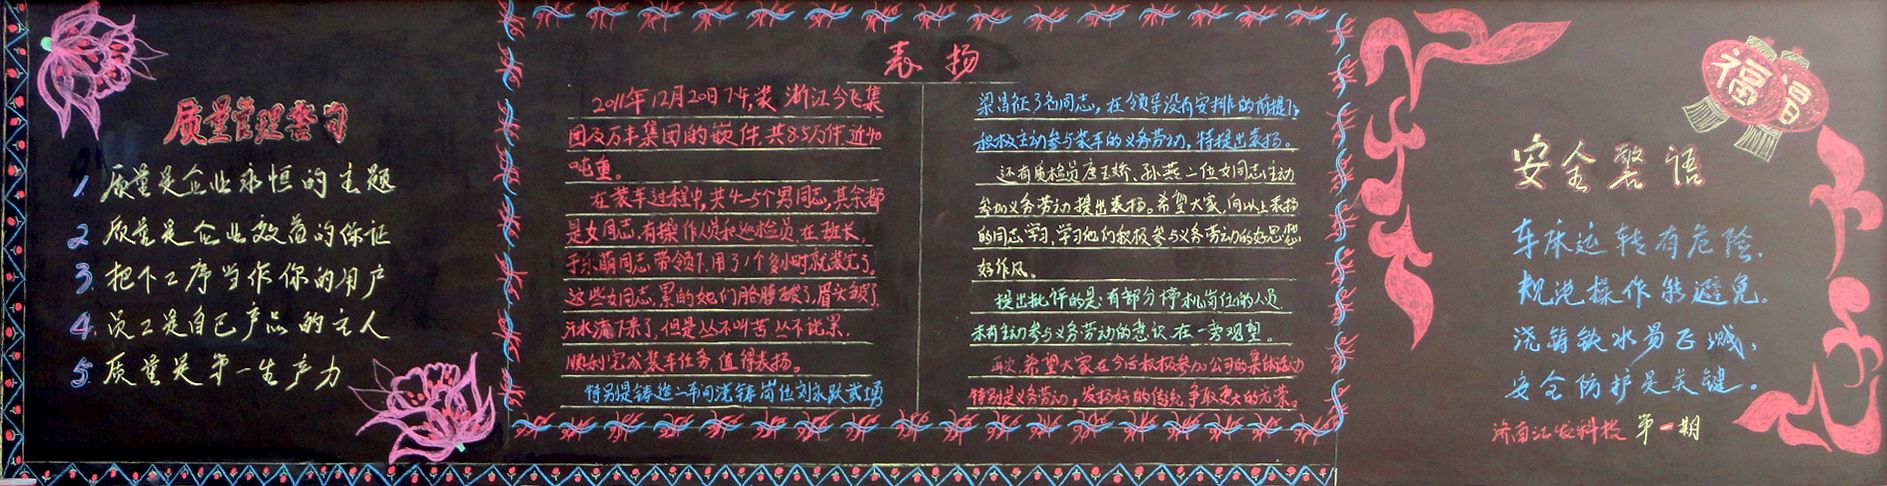 质量管理警句
1. 质量是企业永恒的主题
2. 质量是企业效益的保证
3. 把下工序当作你的用户
4. 员工是自己产品的主人
5. 质量是第一生产力
表扬
2011年12月20日下午,装浙江今飞集
团及万丰集团的嵌件,共8.5万件,近40
吨重。
在装车过程中,共4-5个男同志,其余都
是女同志,有操作人员和巡检员,在班长
于乐萌同志带领下,用了1个多小时就装完了。
这些女同志,累的她们胳膊酸了,眉头皱了,
汗水流下来了,但是丛不叫苦丛不说累,
顺利完成装车任务,值得表扬。
特别是铸造二车间浇铸岗位刘永跃武勇
梁昌征3名同志,在领导没有安排的前提下,
积极主动参与装车的义务劳动,特提出表扬。
还有质检员唐玉娇、孙燕二位女同志主动
参加义务劳动提出表扬。希望大家,向以上表扬
的同志学习,学习他们积极参与义务劳动的好思想
好作风。
提出批评的是:有部分停机岗位的人员
未有主动参与义务劳动的意识,在一旁观望。
再次,希望大家在今后积极参加公司的集体活动
特别是义务劳动,发扬好的传统,争取更大的光荣。
福
安全警语
车床运转有危险,
规范操作能避免。
浇铸铁水易飞溅,
安全防护是关键。
济南汇发科技 第一期